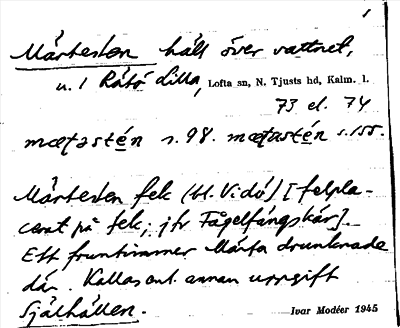 1
Mårtesten hält över vattnet,
u. l Rätö Lilla, Lofta sn, N. Tjusts hd, Kalm. l.
73 el. 74
mœtastén s. 98. mœtastén s. 155.
Mårtesten fek (bl. Vidö) [felpla-
cerat på fek, jfr Fågelfångskär].
Ett fruntimmer Märta drunknade
där. Kallas enl. annan uppgift
Själhällen.
Ivar Modéer 1945